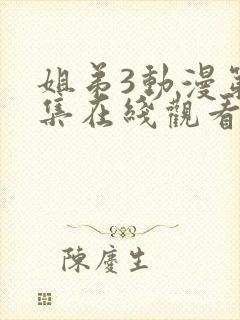 姐弟3動漫第
集在綫觀看
陳慶生